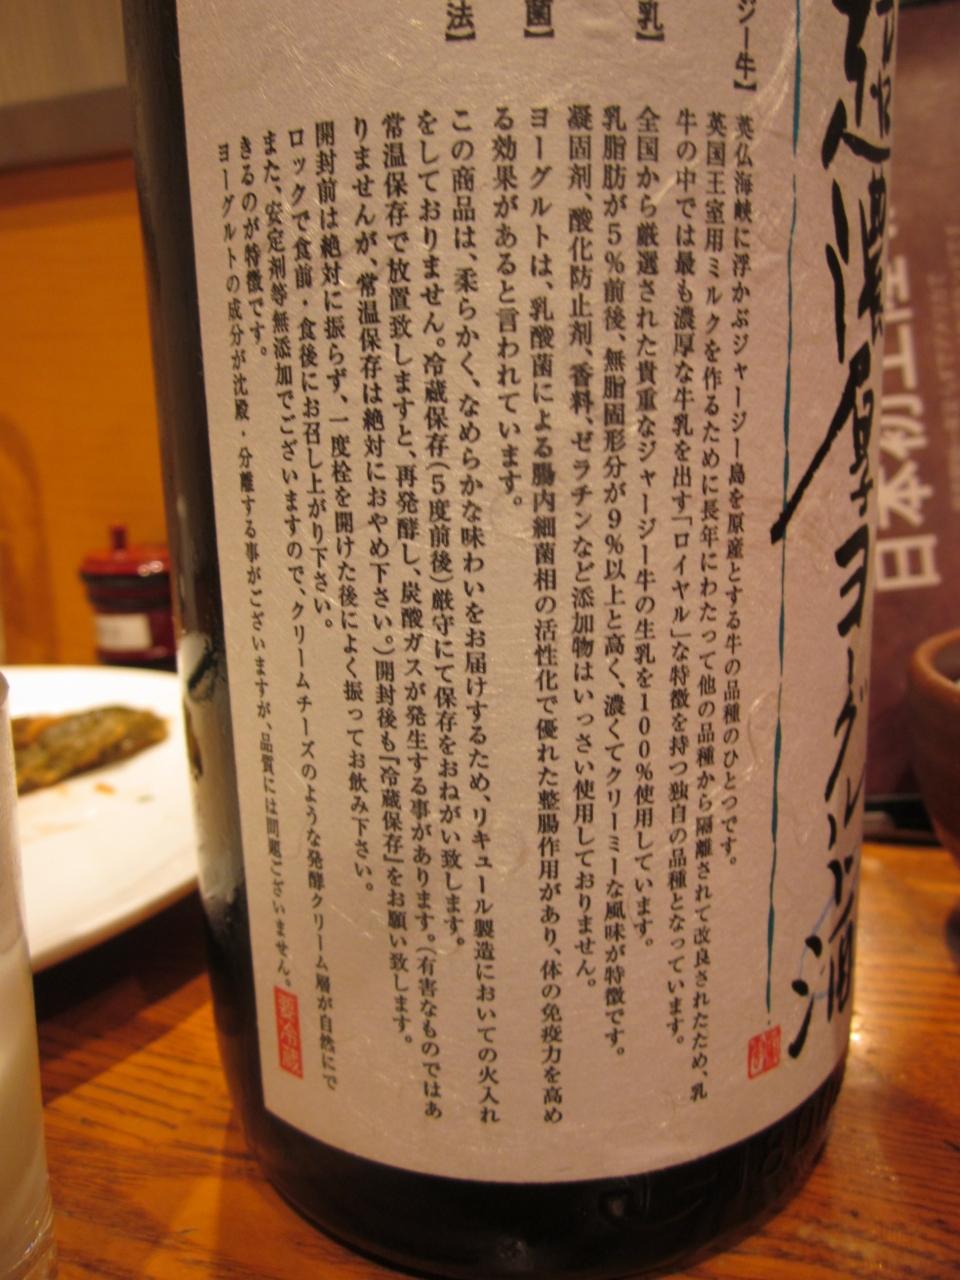 超濃厚ヨーグルト酒
ジー牛】
英仏海峡に浮かぶジャージー島を原産とする牛の品種のひとつです。
英国王室用ミルクを作るために長年にわたって他の品種から隔離されて改良されたため、乳
牛の中では最も濃厚な牛乳を出す「ロイヤル」な特徴を持つ独自の品種となっています。
乳】
全国から厳選された貴重なジャージー牛の生乳を100%使用しています。
乳脂肪が5%前後、無脂固形分が9%以上と高く、濃くてクリーミーな風味が特徴です。
凝固剤、酸化防止剤、香料、ゼラチンなど添加物はいっさい使用しておりません。
菌】
ヨーグルトは、乳酸菌による腸内細菌相の活性化で優れた整腸作用があり、体の免疫力を高め
る効果があると言われています。
法】
この商品は、柔らかく、なめらかな味わいをお届けするため、リキュール製造においての火入れ
をしておりません。冷蔵保存(5度前後)厳守にて保存をおねがい致します。
常温保存で放置致しますと、再発酵し、炭酸ガスが発生する事があります。(有害なものではあ
りませんが、常温保存は絶対におやめ下さい。)開封後も『冷蔵保存』をお願い致します。
開封前は絶対に振らず、一度栓を開けた後によく振ってお飲み下さい。
ロックで食前・食後にお召し上がり下さい。
また、安定剤等無添加でございますので、クリームチーズのような発酵クリーム層が自然にで
きるのが特徴です。
ヨーグルトの成分が沈殿・分離する事がございますが、品質には問題ございません。
要冷蔵
日本初